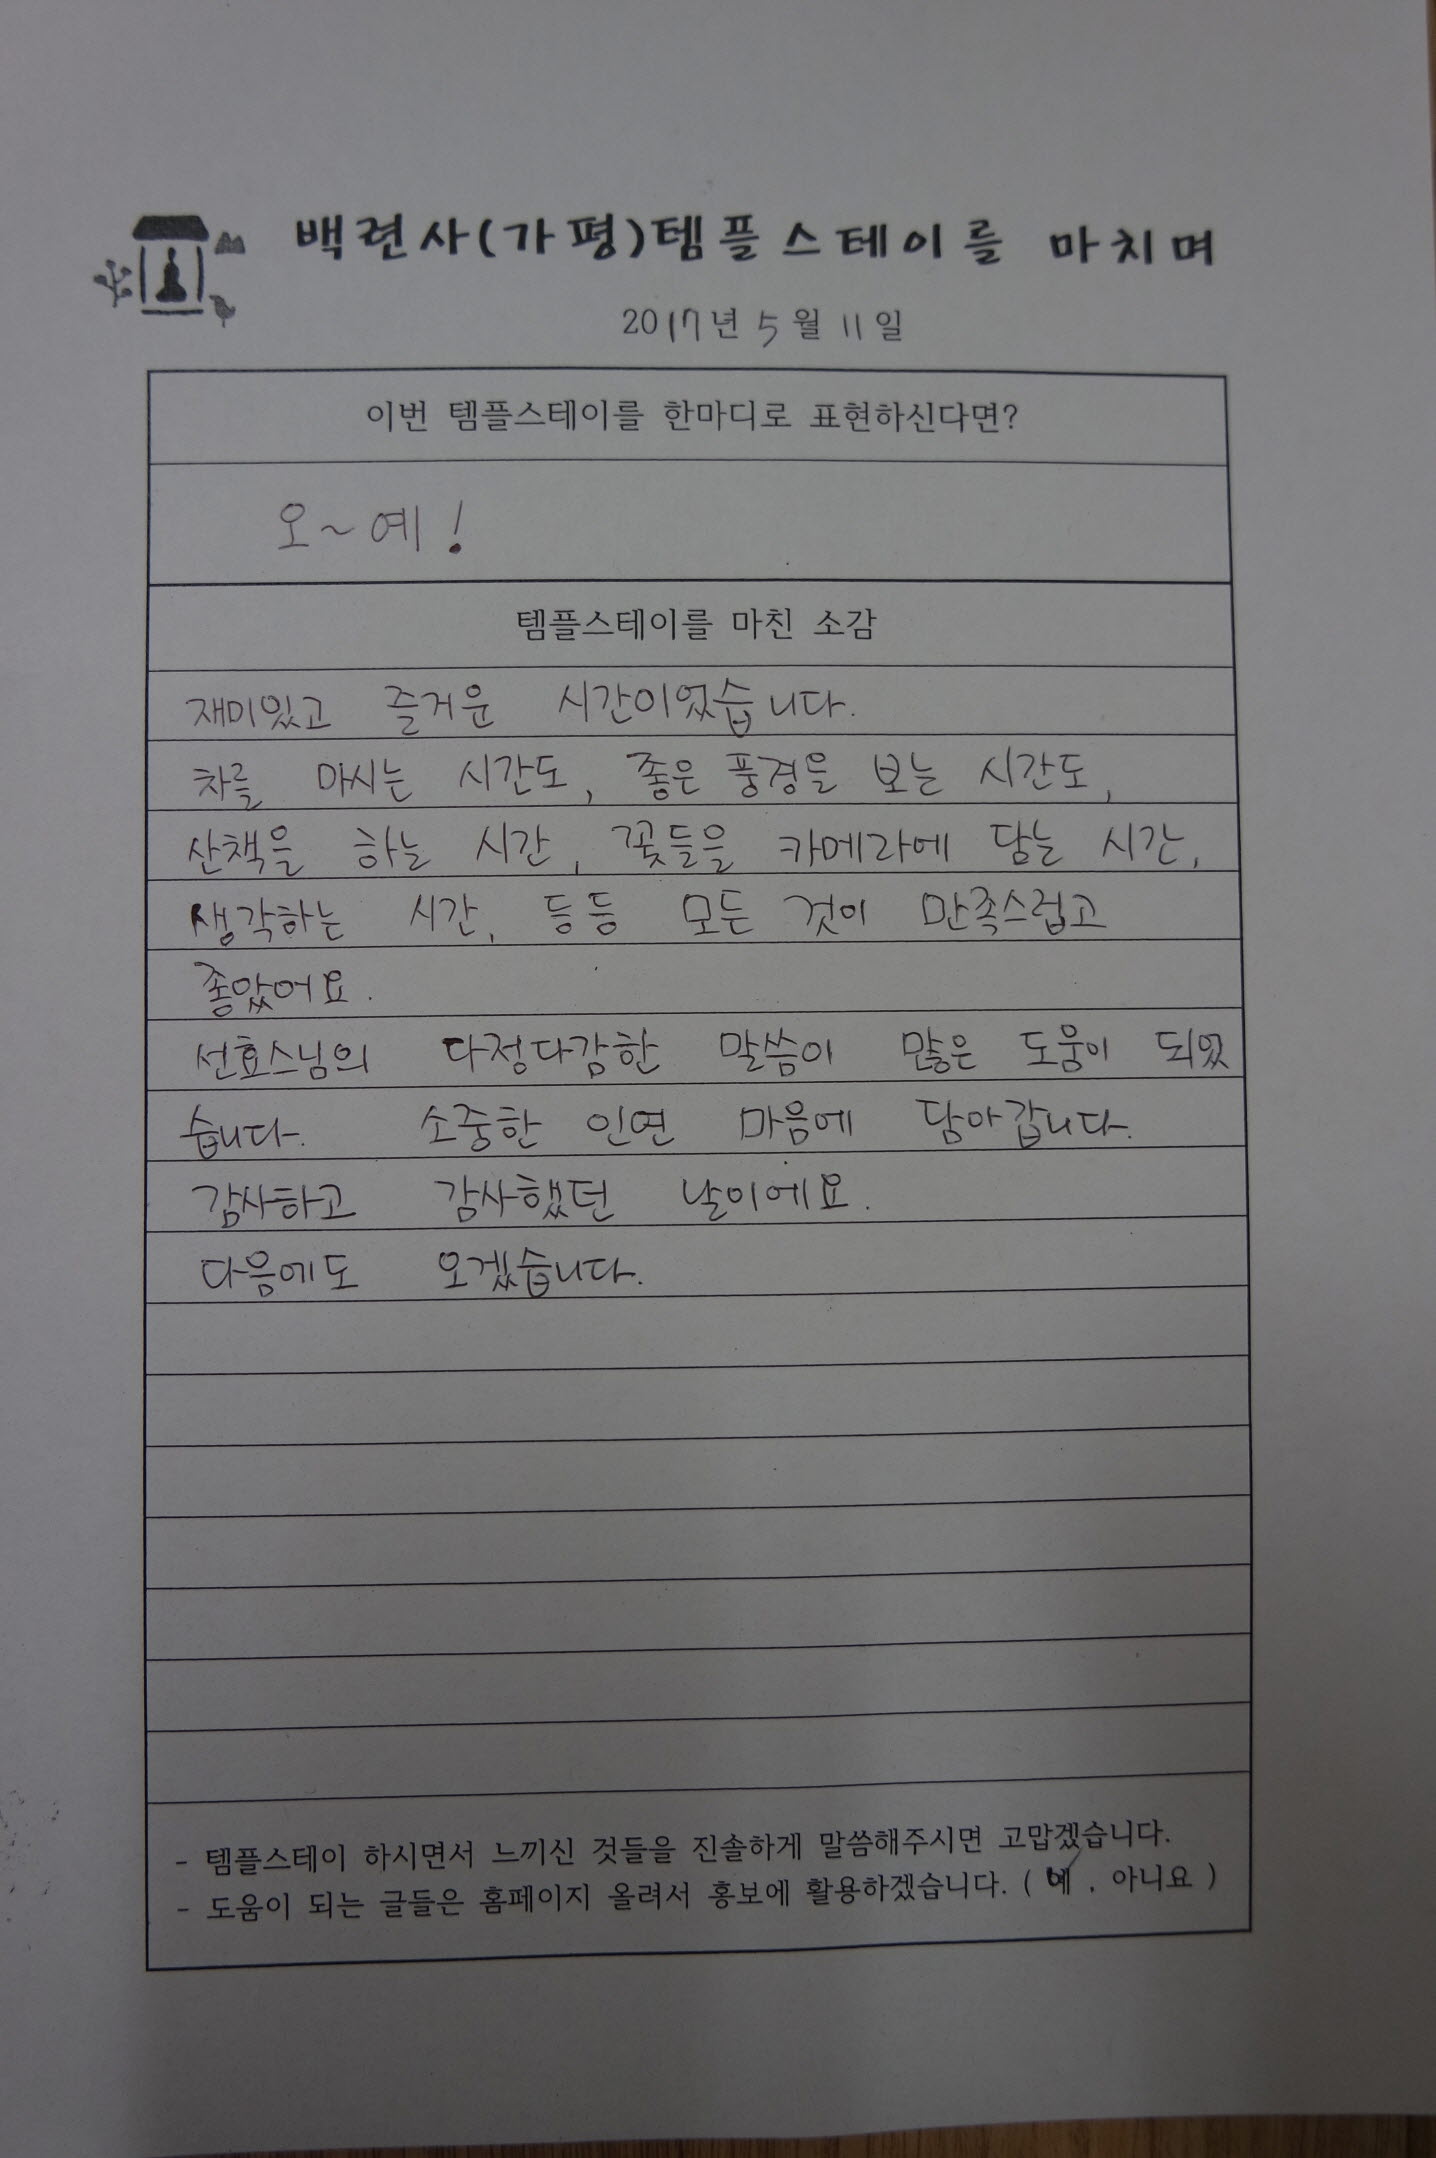 백련사(가평)템플스테이를 마치며
2017년 5월 11일
이번 템플스테이를 한마디로 표현하신다면?
오~예!
템플스테이를 마친 소감
재미있고 즐거운 시간이었습니다.
차를 마시는 시간도, 좋은 풍경을 보는 시간도,
산책을 하는 시간, 꽃들을 카메라에 담는 시간,
생각하는 시간, 등등 모든 것이 만족스럽고
좋았어요.
선효스님의 다정다감한 말씀이 많은 도움이 되었
습니다. 소중한 인연 마음에 담아갑니다.
감사하고 감사했던 날이에요.
다음에도 오겠습니다.
- 템플스테이 하시면서 느끼신 것들을 진솔하게 말씀해주시면 고맙겠습니다.
- 도움이 되는 글들은 홈페이지 올려서 홍보에 활용하겠습니다. ( 예 , 아니요 )